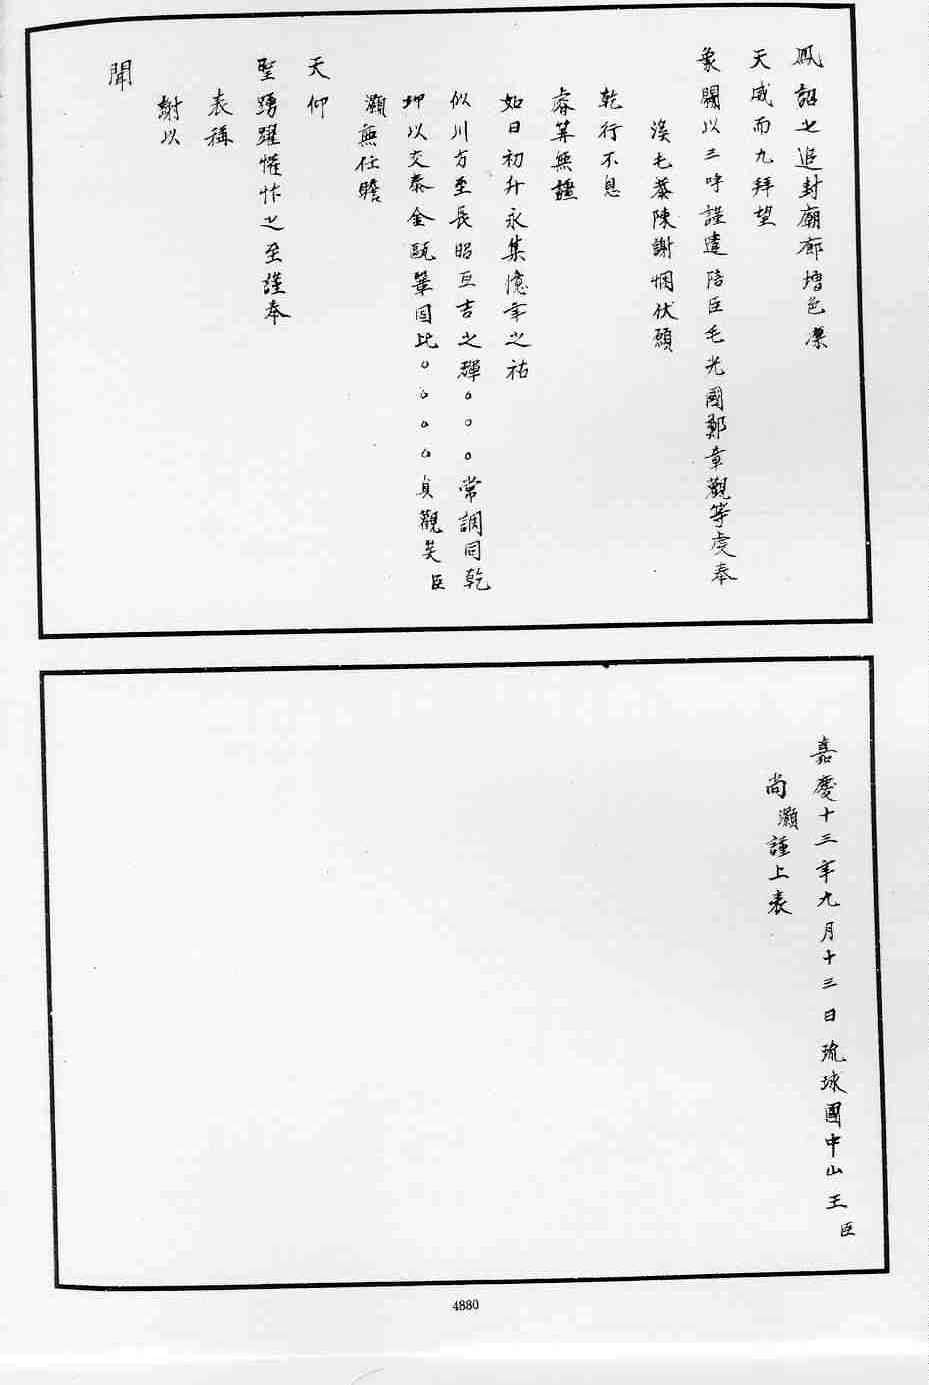 鳳詔之追封廟廊增色凜
天威而九拜望
象闕以三呼謹遣陪臣毛光國鄭章觀等虔奉
渙毛恭陳謝悃伏願
乾行不息
睿算無疆
如日初升永集億年之祜
似川方至長昭亙吉之輝。。。常調同乾
坤以交泰金甌鞏固比。。。。貞觀矣臣
灝無任瞻
天仰
聖踴躍懽忭之至謹奉
表稱
謝以
聞
嘉慶十三年九月十三日琉球國中山王臣
尚灝謹上表
4880